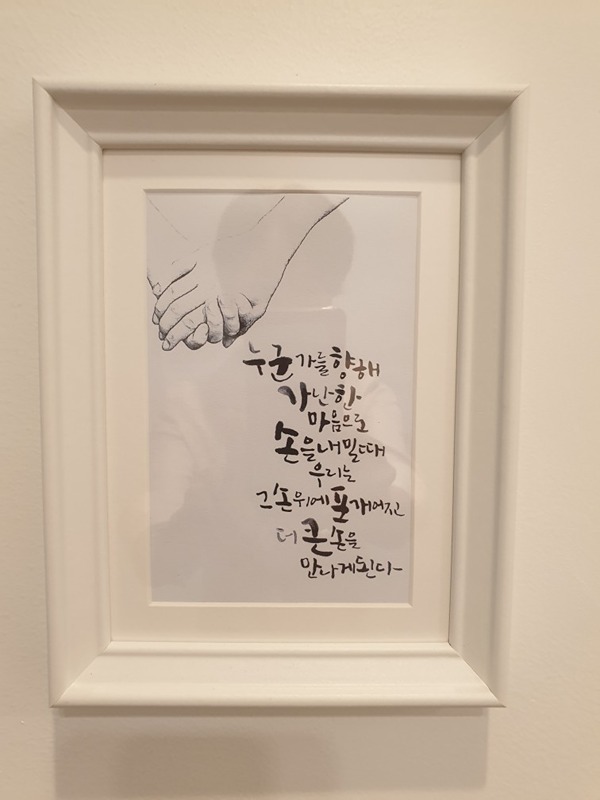 누군가를 향해
가난한
마음으로
손을 내밀때
우리는
그 손 위에 포개어진
더 큰 손을
만나게 된다